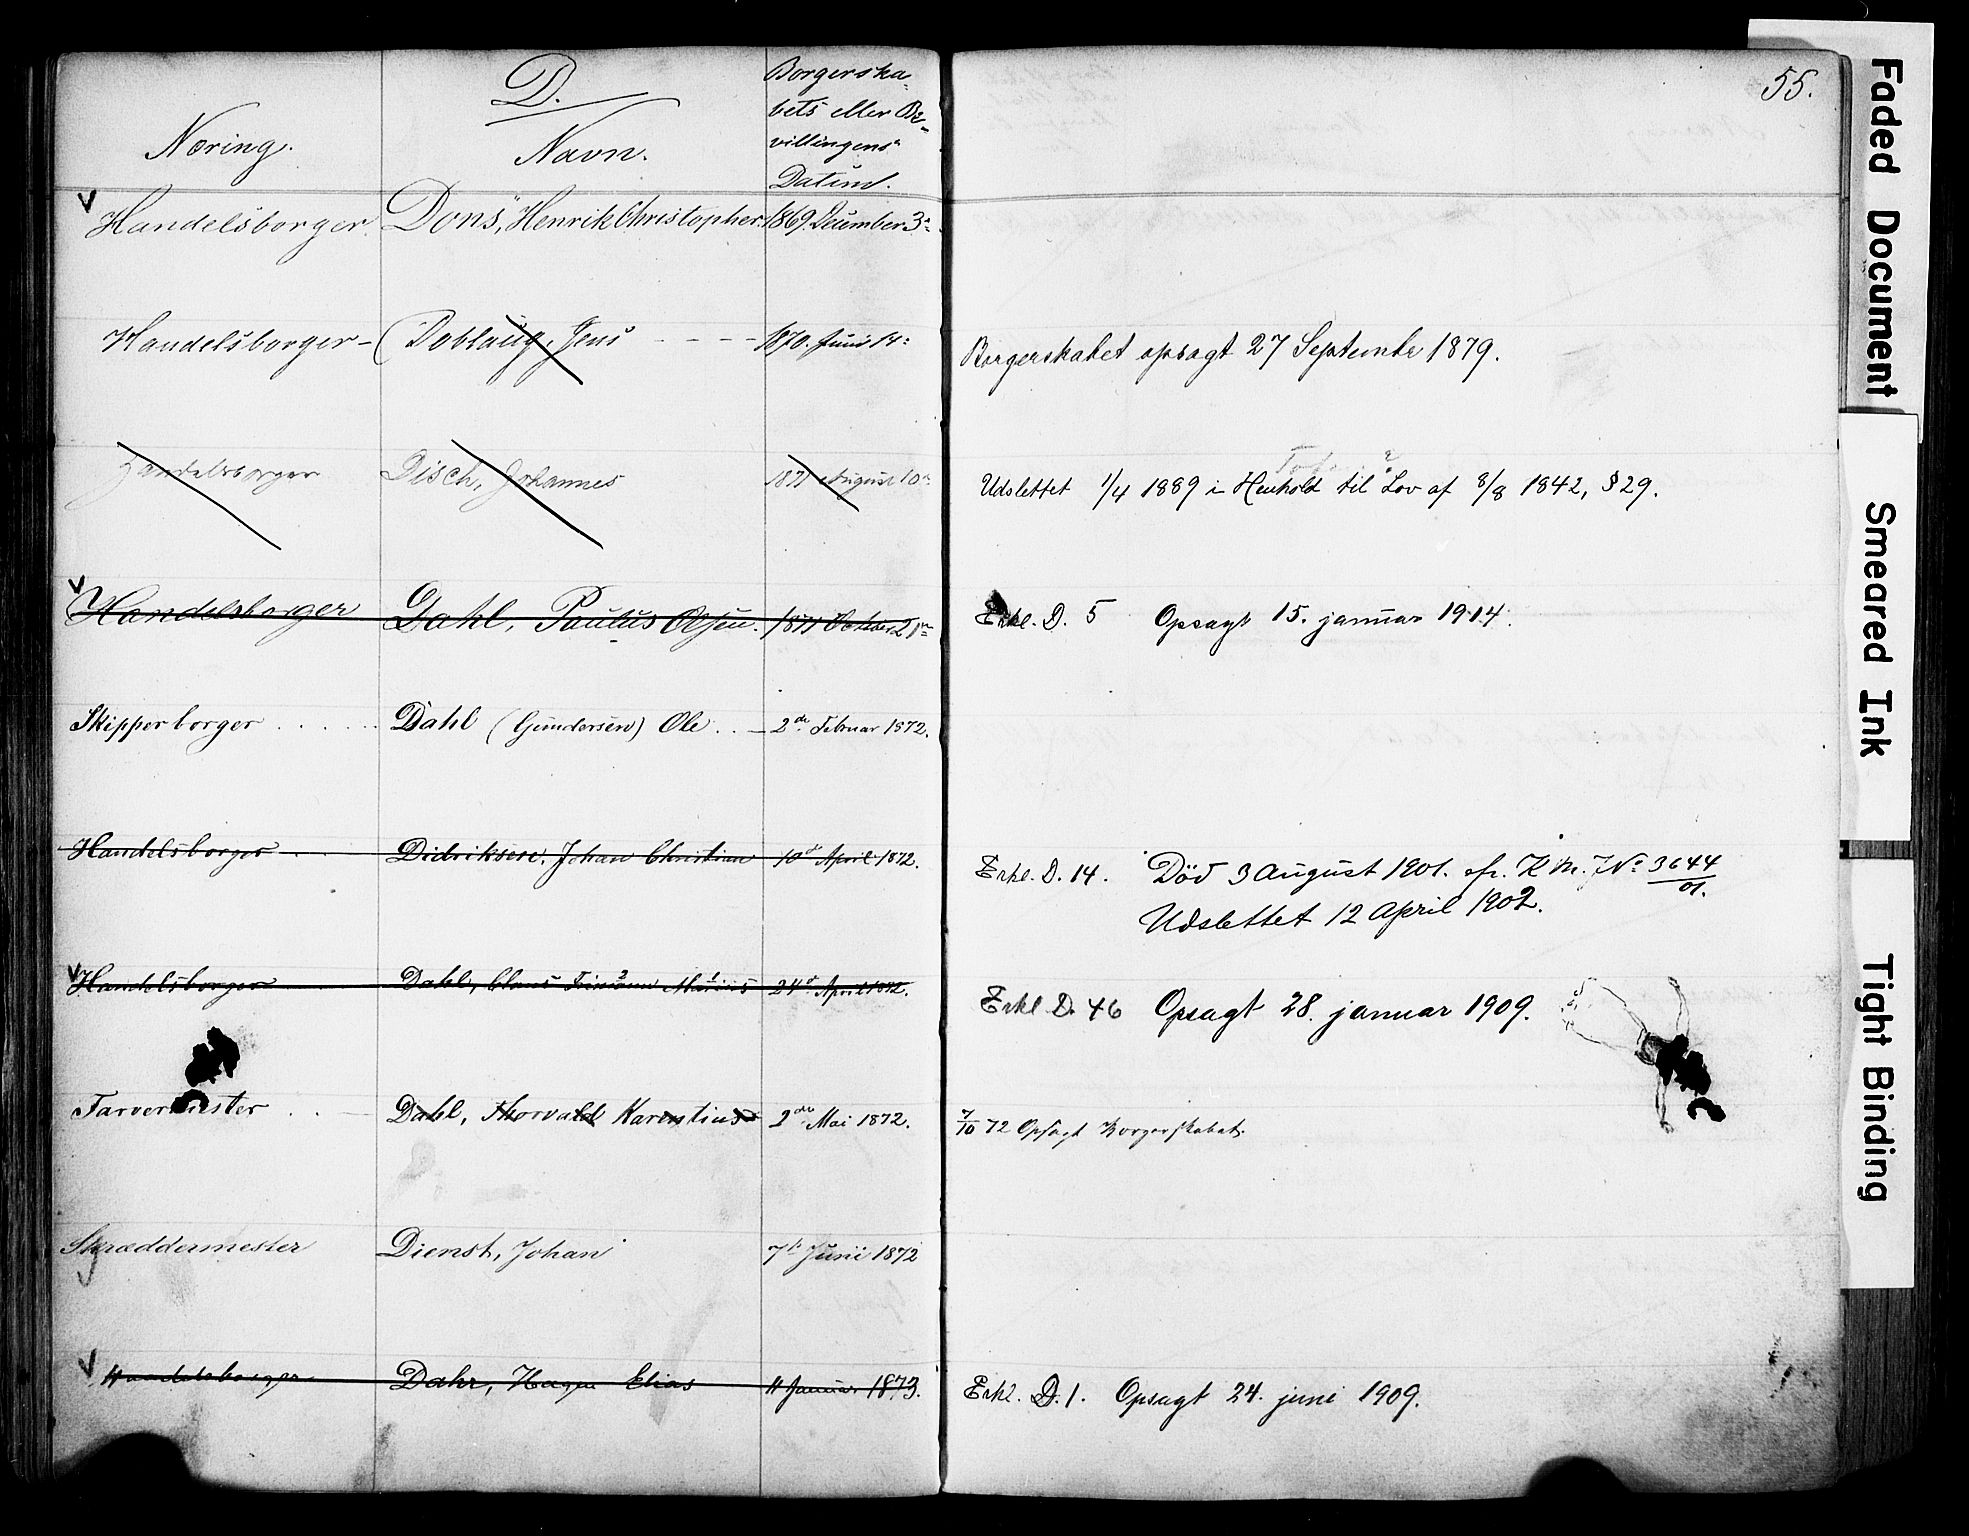 D.
Næring.
Navn.
Borgerska-
bets eller Be-
villingens
Datum.
55.
Handelsborger. Dons, Henrik Christopher. 1869. December 3
Handelsborger - (Doblaug, Jens - - - - 1870. Juni 14
Borgerskabet opsagt 27 September 1879.
Handelsborger Disch, Johannes 1871 August 10
Udslettet 1/4 1889 i Henhold til Lov af 8/8 1842, § 29.
Handelsborger Dahl, Paulus Olsen. 1871 October 21
Erkl. D. 5 Opsagt 15. januar 1914.
Skipperborger . . . . . . Dahl (Gundersen) Ole . . 2de Februar 1872.
Handelsborger . . Didriksen, Johan Christian 10 April 1872.
Erkl. D. 14. Död 3 August 1901. cfr. K. M. J No 3644/01.
Udslettet 12 April 1902.
Handelsborger Dahl, Claus Marius 24 April 1872.
Erkl D. 46 Opsagt 28. januar 1909.
Farvermester . . Dahl, Thorvald 2de Mai 1872.
7/10 72 Opsagt Borgerskabet.
Skræddermester Dienst, Johan 7 Juni 1872
Handelsborger Dahr, Hagen Elias 11 Januar 1873.
Erkl. D. 1. Opsagt 24. juni 1909.
Faded Document
Smeared Ink
Tight Binding